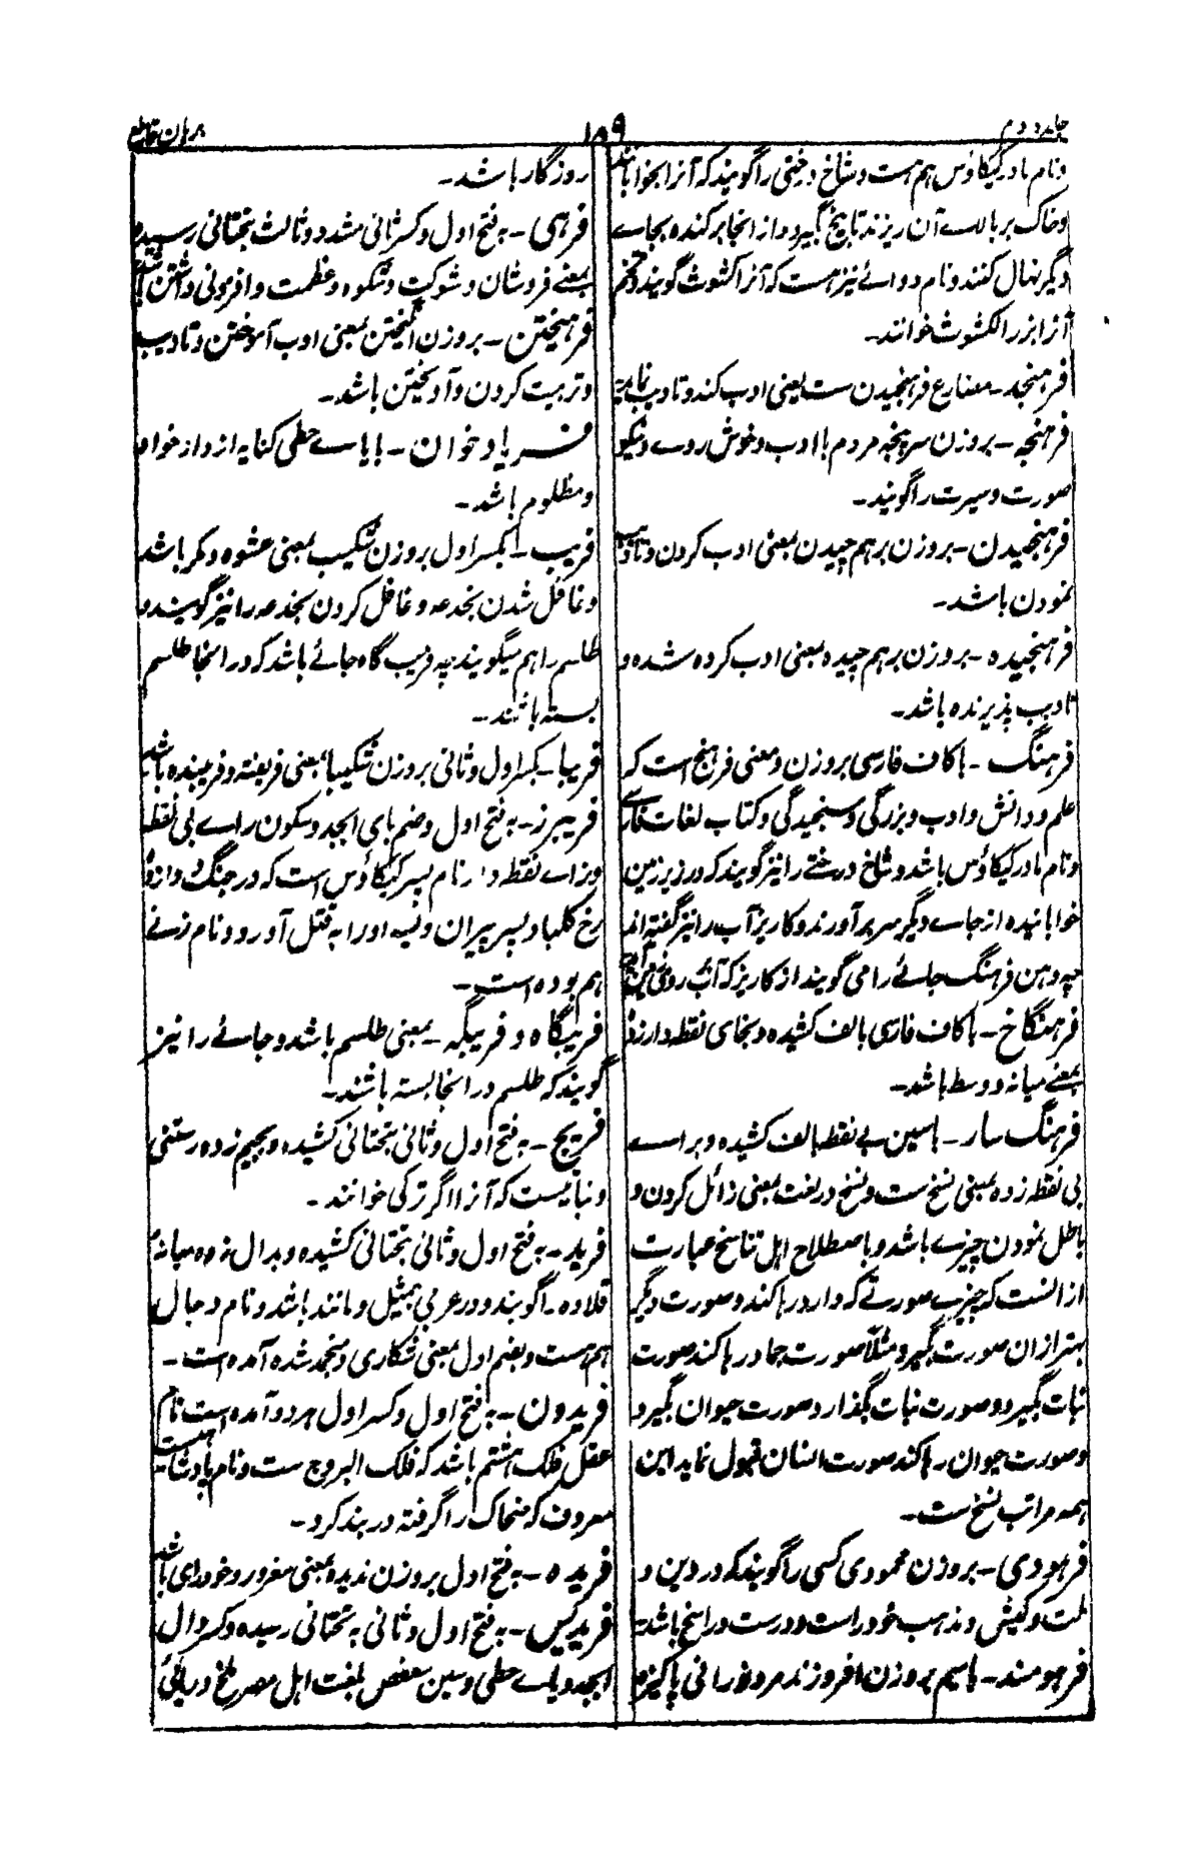 جلد دوم
۱۵۹
برہان قاطع
و نام مادر کیکاؤس ہم ہست و شاخ درختی را گویند کہ آنرا بخوابانند
و خاک بر بالائے آن ریزند تا بیخ گیرد و از انجا بر کندہ بجاے
دیگر نہال کنند و نام دوائے نیز ہست کہ آنرا کشوث گویند و تخم
آنرا بزر الکشوث خوانند۔
فرہنجد۔ مضارع فرہنجیدن ست یعنی ادب کند و تادیب نماید
فرہنجہ۔ بروزن سرپنجہ مردم با ادب و خوش روے و نیکو
صورت و سیرت را گویند۔
فرہنجیدن۔ بروزن برہم چیدن بمعنی ادب کردن و تادیب
نمودن باشد۔
فرہنجیدہ۔ بروزن برہم چیدہ بمعنی ادب کردہ شدہ و
ادب پذیرندہ باشد۔
فرہنگ۔ باکاف فارسی بروزن و معنی فرہنج است کہ
علم و دانش و ادب و بزرگی و سنجیدگی و کتاب لغات فارسی
و نام مادر کیکاؤس باشد و شاخ درختے را نیز گویند کہ در زیر زمین
خوابانیدہ از جاے دیگر سر برآورند و کاریز آب را نیز گفتہ اند
چہ دہن فرہنگ جائے را می گویند از کاریز کہ آب بر روی زمین آید
فرہنگاخ۔ باکاف فارسی بالف کشیدہ و بخای نقطہ دار زدہ
بمعنے میانہ و وسط باشد۔
فرہنگ سار۔ باسین بے نقطہ بالف کشیدہ و براے
بی نقطہ زدہ بمعنی نسخ ست و نسخ در لغت بمعنی زائل کردن و
باطل نمودن چیزے باشد و باصطلاح اہل تناسخ عبارت
از انست کہ چیزے صورتے کہ دارد رہا کند و صورت دیگر
بہتر از ان صورت بگیرد مثلاً صورت جماد رہا کند صورت
نبات بگیرد و صورت نبات بگذارد صورت حیوان بگیرد
و صورت حیوان رہا کند صورت انسان قبول نماید این
ہمہ مراتب نسخ ست۔
فرہودی۔ بروزن محمودی کسی را گویند کہ در دین و
ملت و کیش و مذہب خود راست و درست و راسخ باشد
فرہومند۔ با میم بروزن افروزند مرد نورانی پاکیزہ
روزگار باشد۔
فرہی۔ بہ فتح اول و کسر ثانی مشدد و ثالث بتحتانی رسیدہ
بمعنے فر و شان و شوکت و شکوہ و عظمت و افزونی داشتن باشد
فرہیختن۔ بروزن انگیختن بمعنی ادب آموختن و تادیب
و تربیت کردن و آویختن باشد۔
فریادخوان۔ بایاے حطی کنایہ از دادخواہ
و مظلوم باشد۔
فریب۔ بکسر اول بروزن شکیب بمعنی عشوہ و مکر باشد
و غافل شدن بخدعہ و غافل کردن بخدعہ را نیز گویند و
طلسم را ہم میگویند چہ فریب گاہ جائے باشد کہ در انجا طلسم
بستہ باشند۔
فریبا۔ بکسر اول و ثانی بروزن شکیبا بمعنی فریفتہ و فریبندہ باشد
فریبرز۔ بہ فتح اول و ضم بای ابجد و سکون راے بی نقطہ
وزاے نقطہ دار نام پسر کیکاؤس است کہ در جنگ دوازدہ
رخ کلباد پسر پیران ویسہ اورا بہ قتل آورد و نام زنے
ہم بودہ است۔
فریبگاہ و فریبگہ۔ بمعنی طلسم باشد و جائے را نیز
گویند کہ طلسم در انجا بستہ باشند۔
فریج۔ بہ فتح اول و ثانی بتحتانی کشیدہ و بجیم زدہ رستنی
و نباتیست کہ آنرا اگر ترکی خوانند۔
فرید۔ بہ فتح اول و ثانی بتحتانی کشیدہ و بدال زدہ میانۂ
قلادہ را گویند و در عربی بمثیل و مانند باشد و نام دجال
ہم ہست و بضم اول بمعنی شکاری و منجمد شدہ آمدہ است۔
فریدون۔ بہ فتح اول و کسر اول ہر دو آمدہ است نام
عقل فلک ہشتم باشد کہ فلک البروج ست و نام پادشاہیست
معروف کہ ضحاک را گرفتہ در بند کرد۔
فریدہ۔ بہ فتح اول بروزن ندیدہ بمعنی مغرور و خودرای باشد
فریدیس۔ بہ فتح اول و ثانی بہ تحتانی رسیدہ و کسر دال
ابجد و یاے حطی و سین سعفص بلغت اہل مصر ملخ دریائی